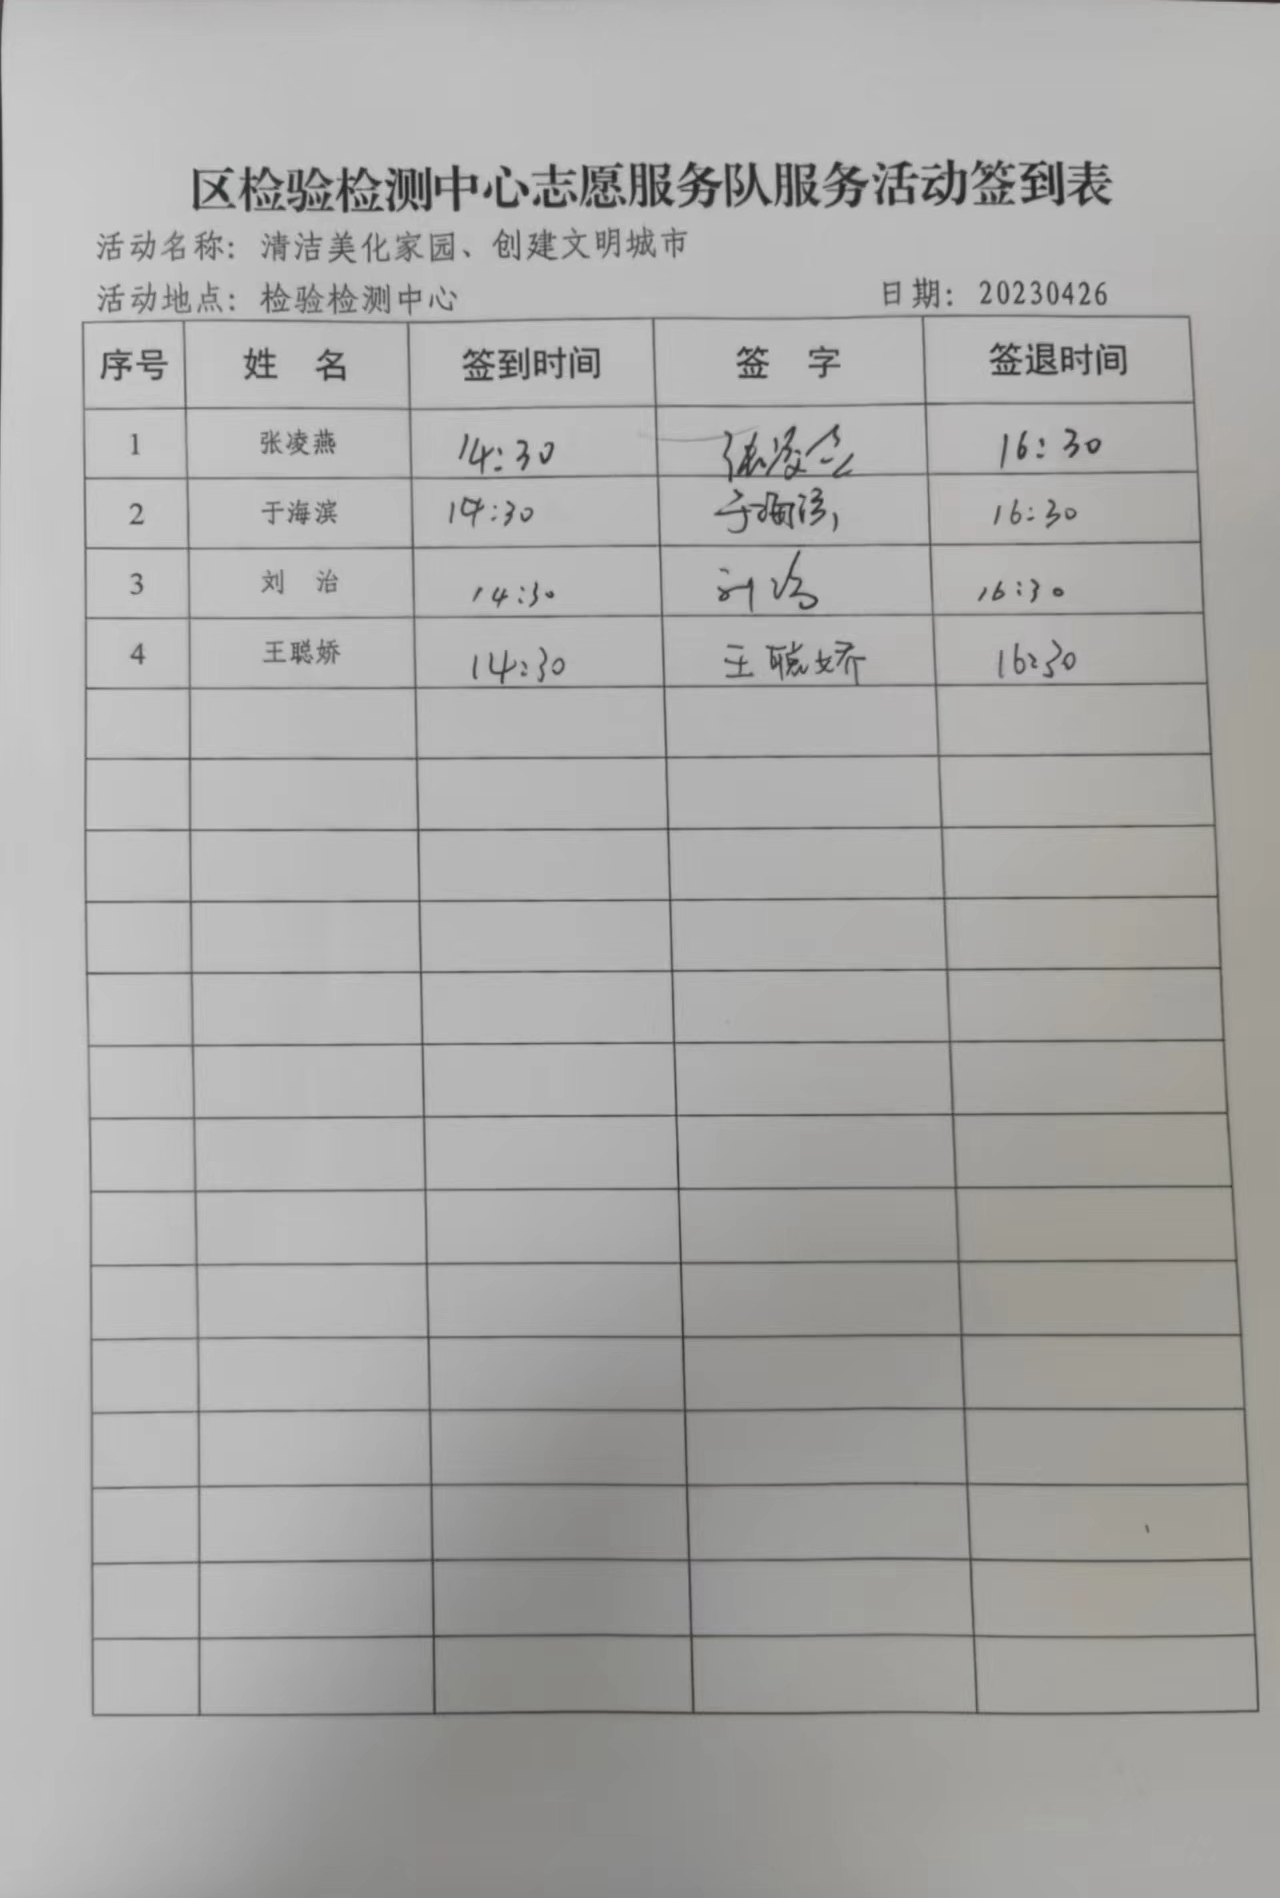 区检验检测中心志愿服务队服务活动签到表
活动名称：清洁美化家园、创建文明城市
活动地点：检验检测中心 日期：20230426
序号 姓 名 签到时间 签 字 签退时间
1 张凌燕 14:30 张凌燕 16:30
2 于海滨 14:30 于海滨 16:30
3 刘 治 14:30 刘治 16:30
4 王聪娇 14:30 王聪娇 16:30